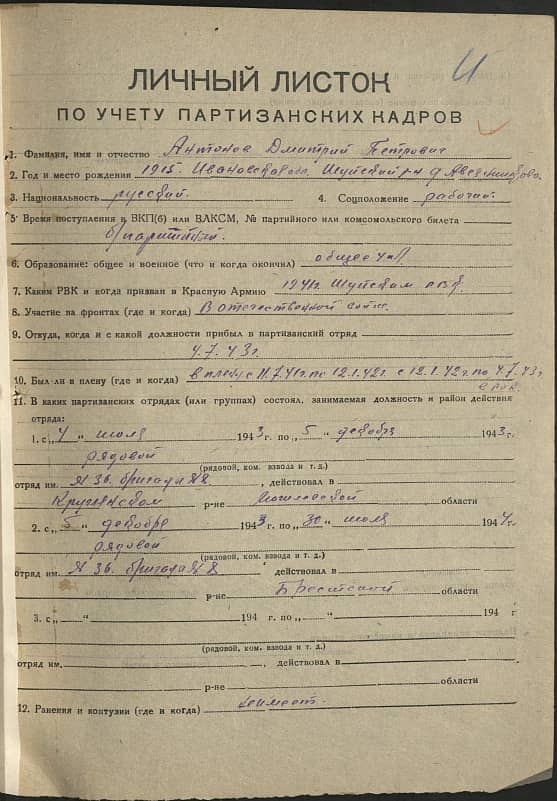 ЛИЧНЫЙ ЛИСТОК
ПО УЧЕТУ ПАРТИЗАНСКИХ КАДРОВ
1. Фамилия, имя и отчество Антонов Дмитрий Петрович
2. Год и место рождения 1915. Ивановская обл. Шуйский р-н д.
3. Национальность русский. 4. Соцположение рабочий.
5 Время поступления в ВКП(б) или ВЛКСМ, № партийного или комсомольского билета
б/партийный.
6. Образование: общее и военное (что и когда окончил) общее 4 кл.
7. Каким РВК и когда призван в Красную Армию 1941г. Шуйским РВК
8. Участие на фронтах (где и когда) В отечественной войне.
9. Откуда, когда и с какой должности прибыл в партизанский отряд
4.7.43г.
10. Был-ли в плену (где и когда) в плену с 11.7.41г. по 12.1.42г. с 12.1.42г. по 4.7.43г.
11. В каких партизанских отрядах (или группах) состоял, занимаемая должность и район действия
отряда:
1. с „4 " июля 1943г. по „5 " декабря 1943г.
рядовой
(рядовой, ком. взвода и т. д.)
отряд им. № 36. бригада № 8 , действовал в
Круглянском р-не Могилевской области
2. с „5 " декабря 1943 г. по „30 " июля 1944г.
рядовой
(рядовой, ком. взвода и т. д.)
отряд им. № 36. бригада № 8 , действовал в
р-не Брестской области
3. с „ " 194 г. по „ " 194 г
(рядовой, ком. взвода и т. д.)
отряд им. , действовал в
р-не области
12. Ранения и контузии (где и когда) не имеет.